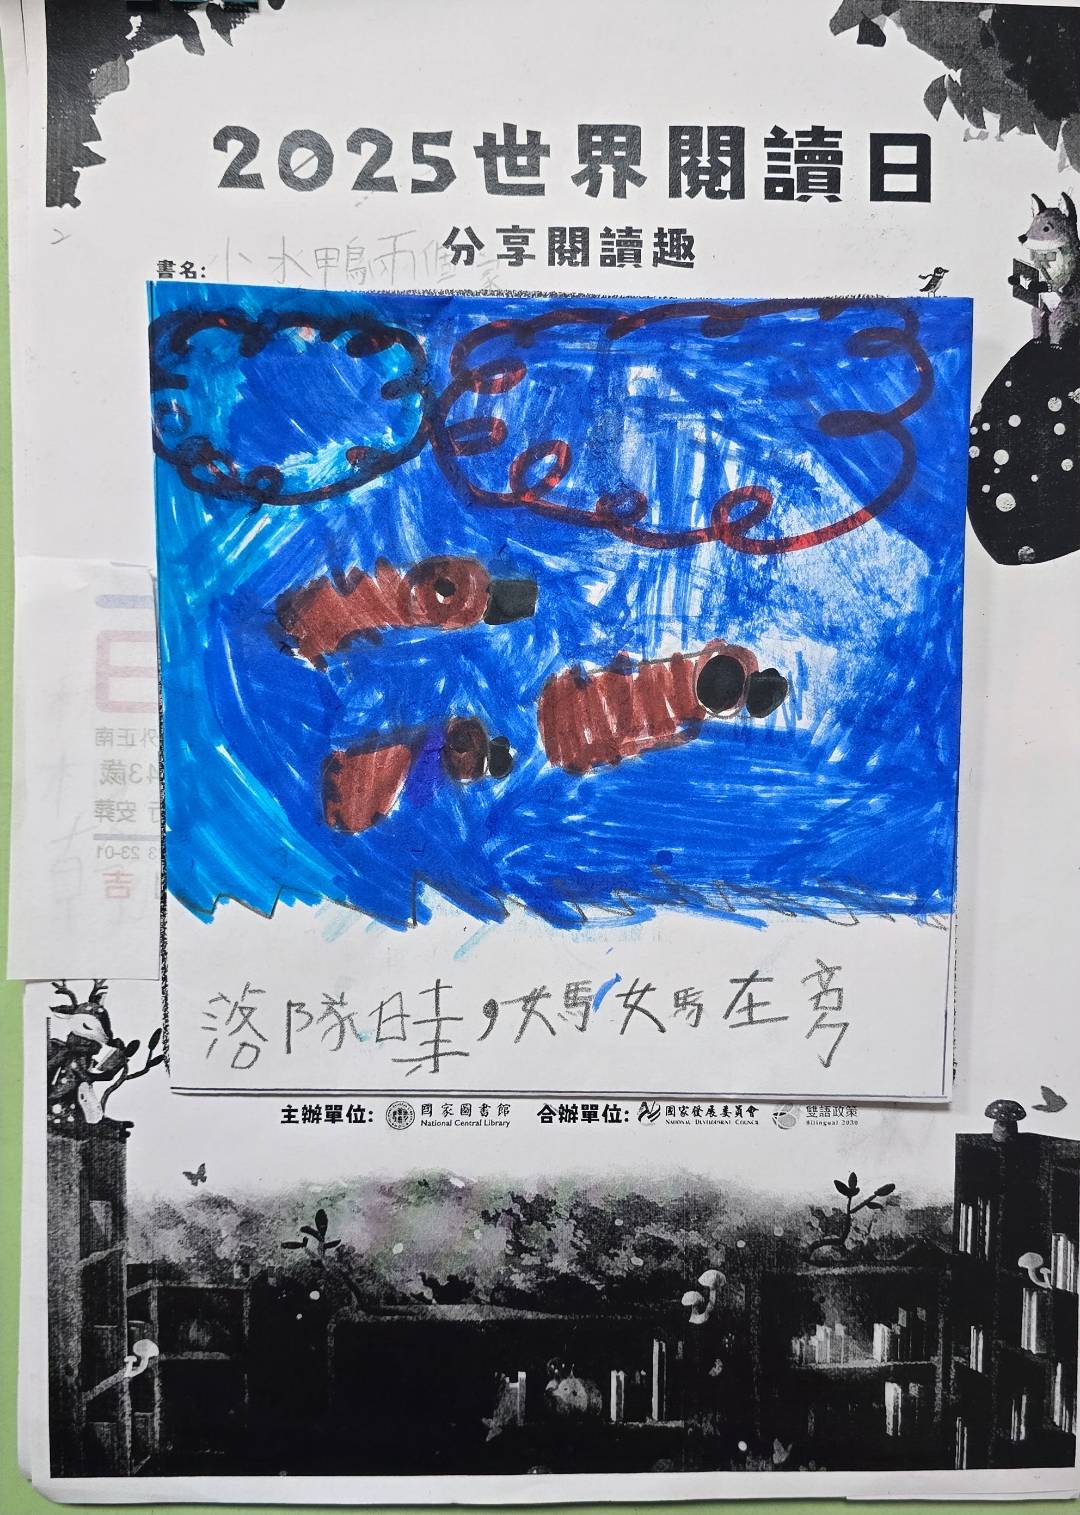 2025世界閱讀日
分享閱讀趣
書名: 小水鴨兩個家
落隊時，媽媽在旁
主辦單位: 國家圖書館 National Central Library 合辦單位: 國家發展委員會 NATIONAL DEVELOPMENT COUNCIL 雙語政策 Bilingual 2030